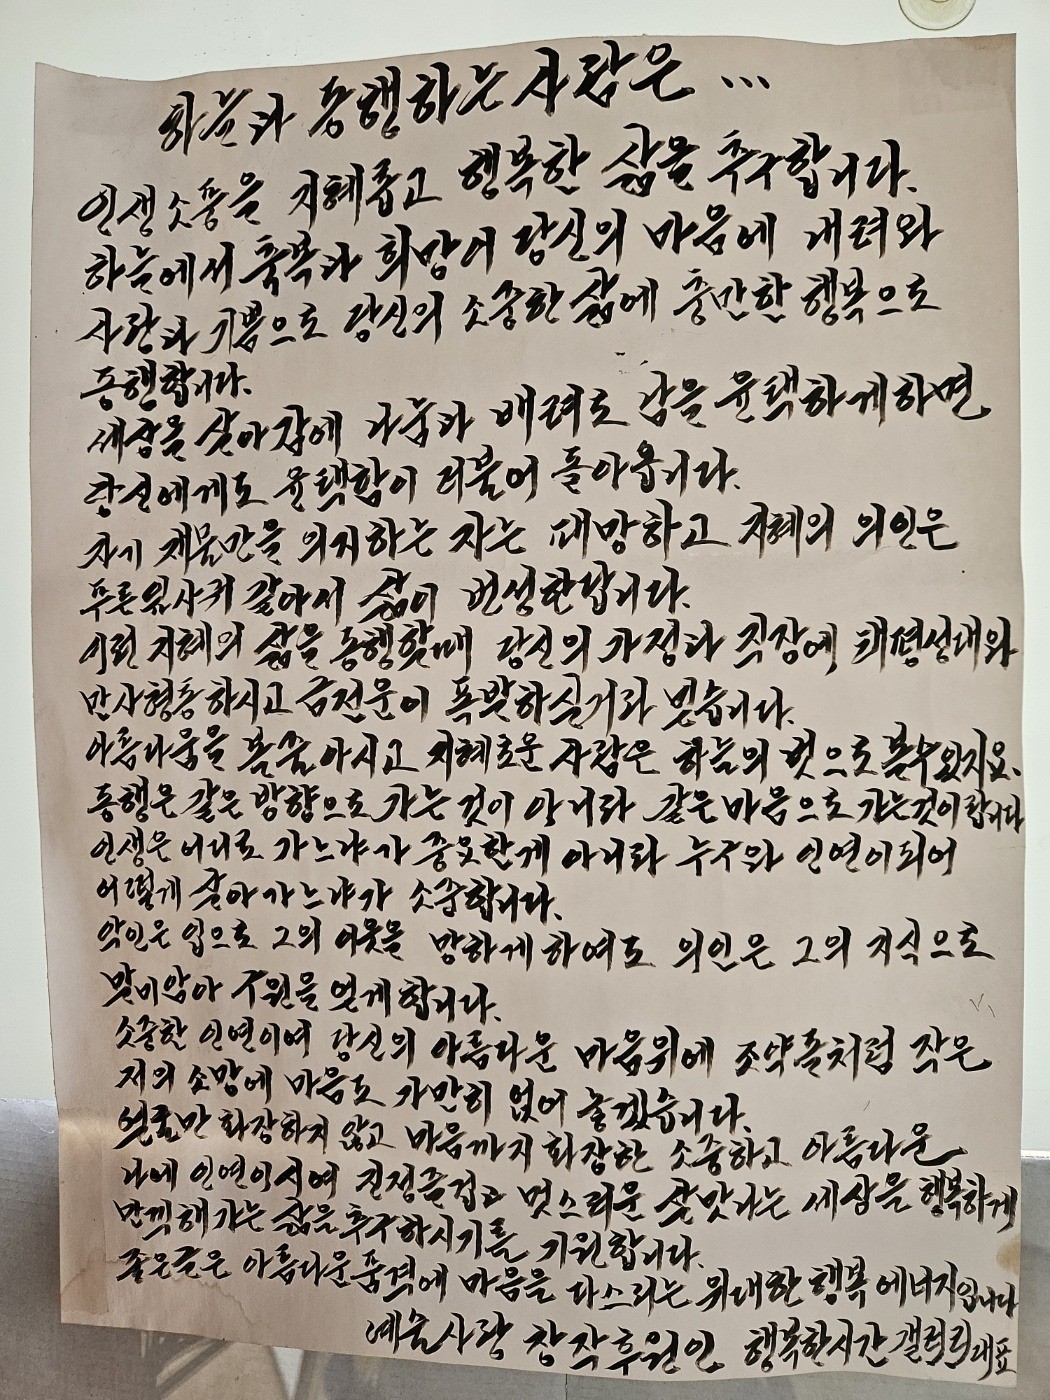 하늘과 동행하는 사람은 ...
인생소풍을 지혜롭고 행복한 삶을 추구합니다.
하늘에서 축복과 희망이 당신의 마음에 내려와
사랑과 기쁨으로 당신의 소중한 삶에 충만한 행복으로
동행합니다.
세상을 살아감에 나눔과 배려로 남을 윤택하게하면
당신에게도 윤택함이 더불어 돌아옵니다.
자기 재물만을 의지하는 자는 패망하고 지혜의 의인은
푸른잎사귀 같아서 삶이 번성한답니다.
이런 지혜의 삶을 동행할때 당신의 가정과 직장에 태평성대와
만사형통하시고 금전운이 폭발하실거라 믿습니다.
아름다움을 볼줄아시고 지혜로운 사람은 하늘의 벗으로 불수있지요.
동행은 같은 방향으로 가는것이 아니라 같은마음으로 가는것이랍니다
인생은 어디로 가느냐가 중요한게 아니라 누구와 인연이되어
어떻게 살아가느냐가 소중합니다.
악인은 입으로 그의 이웃을 망하게하여도 의인은 그의 지식으로
말미암아 구원을 얻게합니다.
소중한 인연이여 당신의 아름다운 마음위에 조약돌처럼 작은
저의 소망에 마음도 가만히 얹어 놓겠습니다.
얼굴만 화장하지 않고 마음까지 화장한 소중하고 아름다운
나에 인연이시여 진정즐겁고 멋스러운 살맛나는 세상을 행복하게
만끽해가는 삶을추구하시기를 기원합니다.
좋은글은 아름다운품격에 마음을 다스리는 위대한 행복 에너지입니다
예술사랑 창작후원인 행복한시간갤러리대표